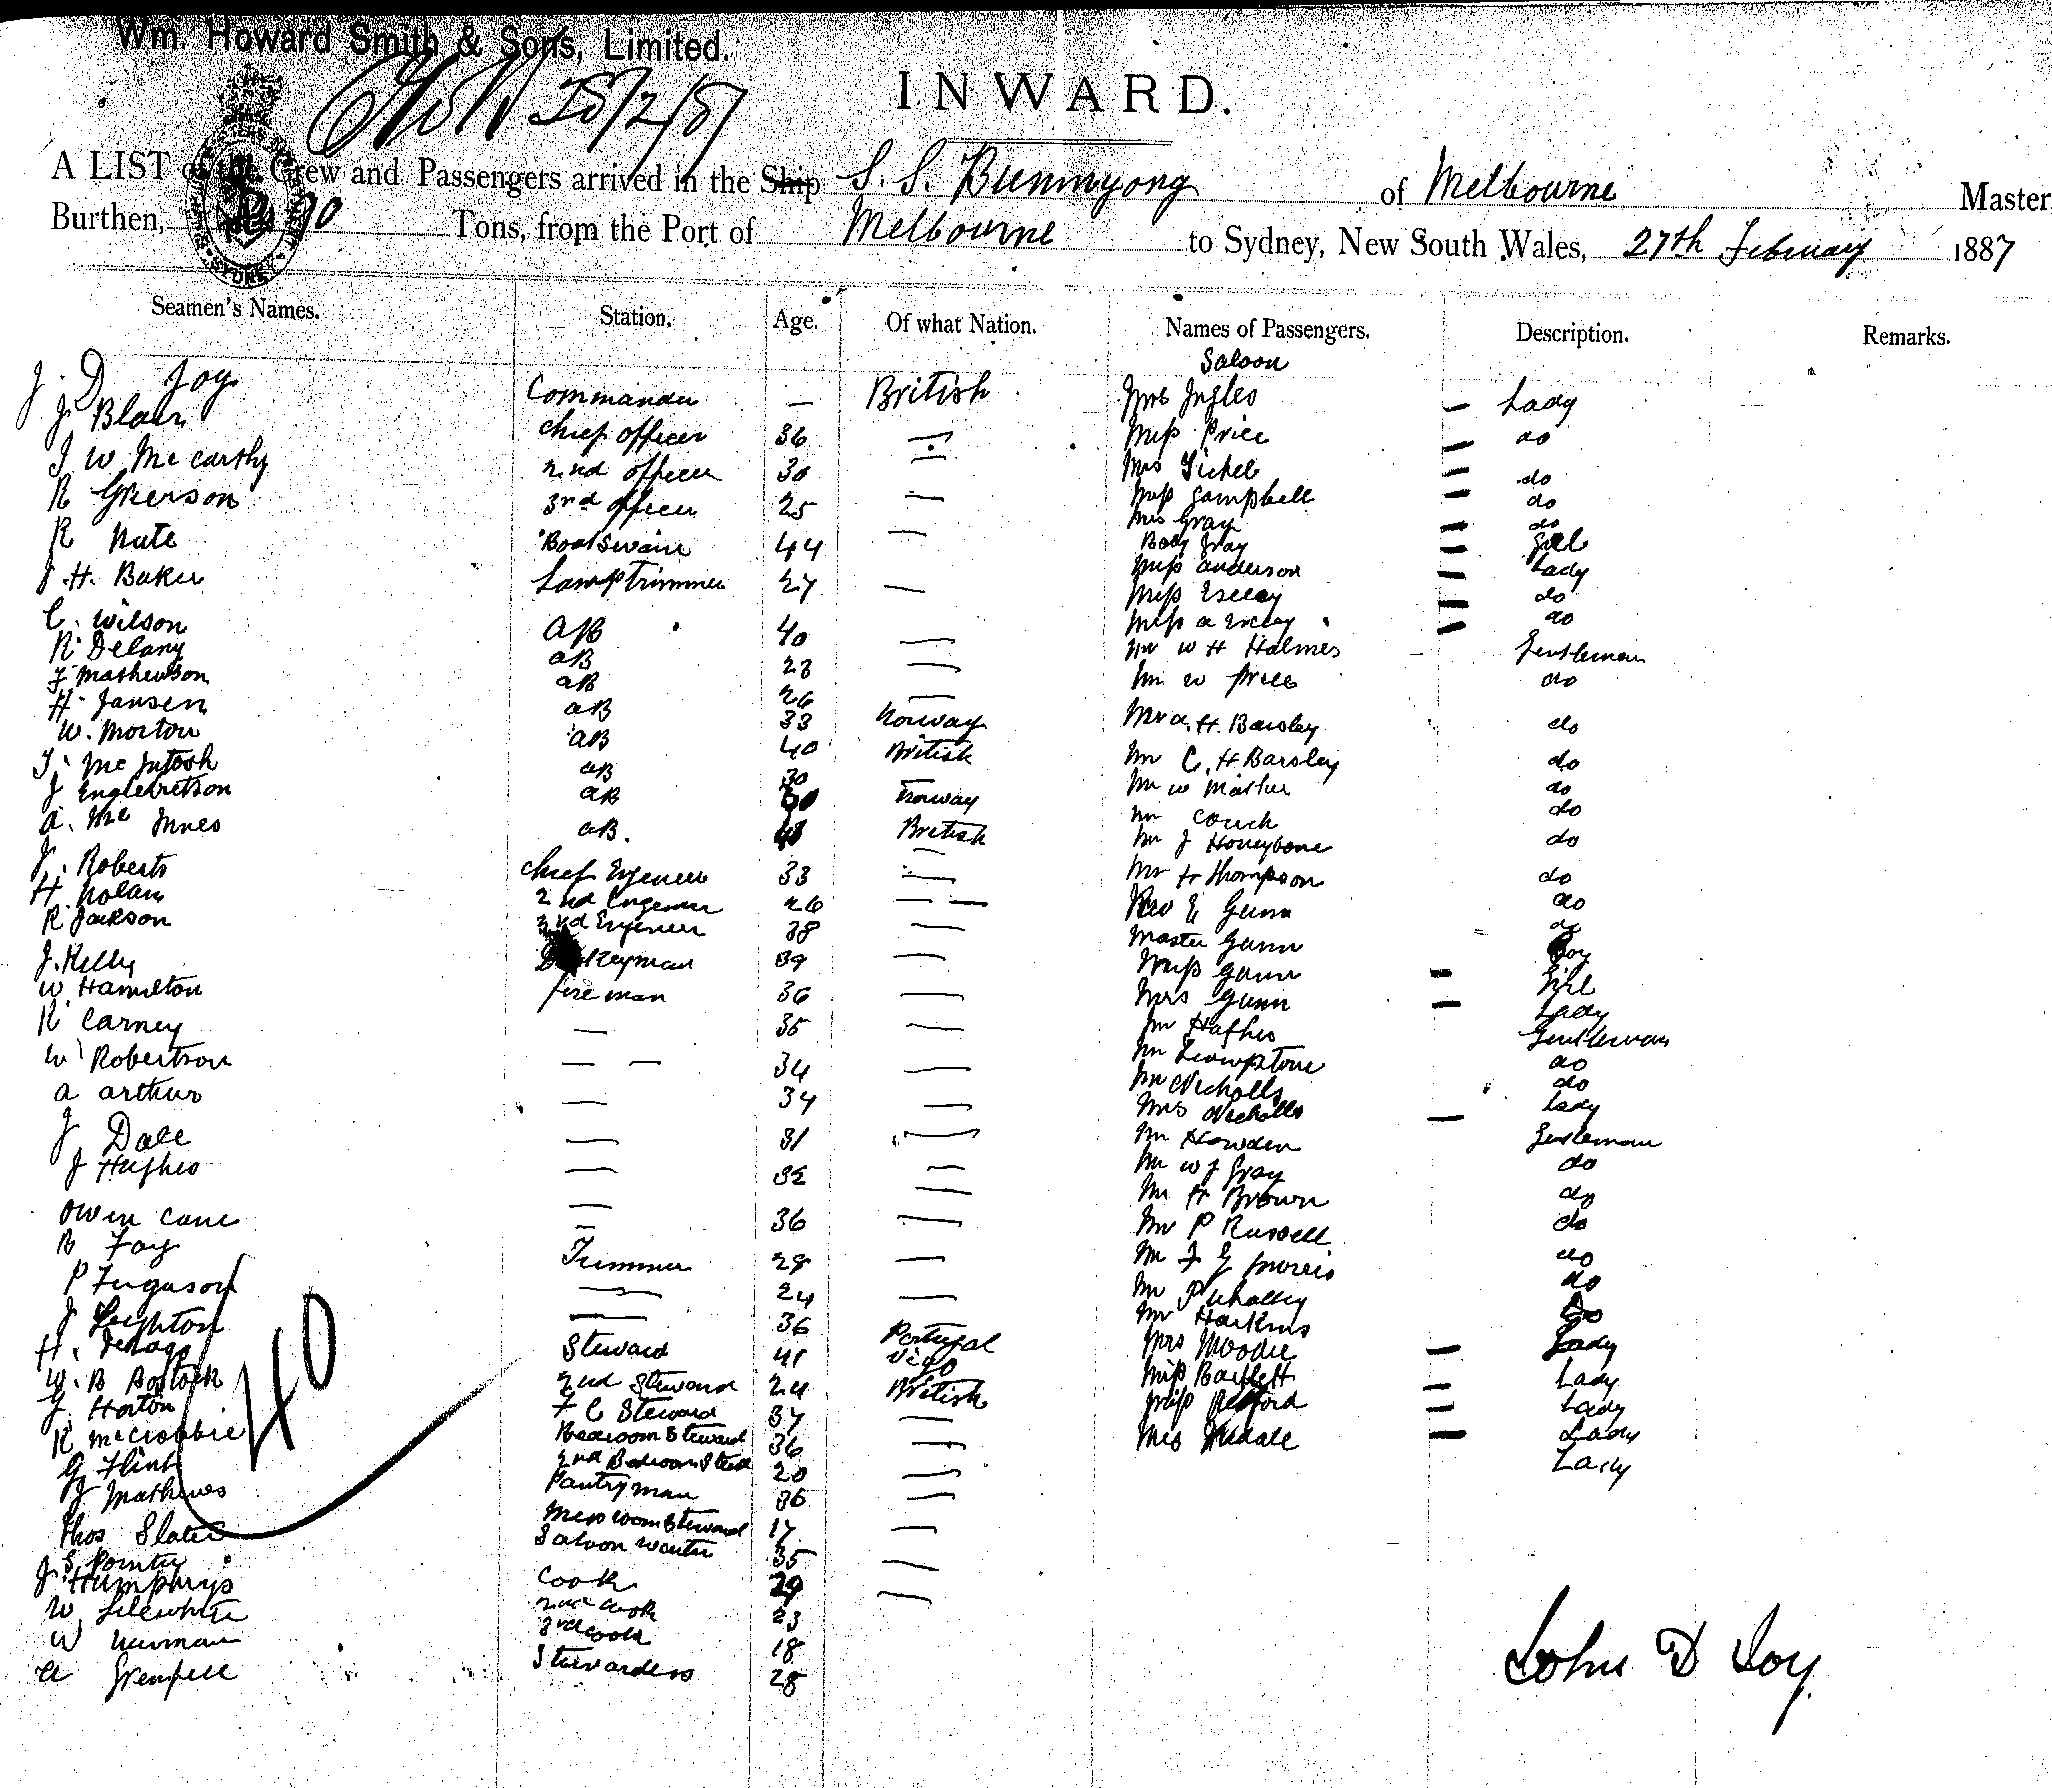 Wm. Howard Smith & Sons, Limited.
28/2/87
INWARD.
A LIST of the Crew and Passengers arrived in the Ship S. S. Bunninyong of Melbourne Master
Burthen, Tons, from the Port of Melbourne to Sydney, New South Wales, 27th February 1887
Seamen's Names. Station. Age. Of what Nation. Names of Passengers. Description. Remarks.
Saloon
J. D Joy Commander — British Mrs Ingles — Lady
J Blair Chief officer 36 — Miss Price — do
J W McCarthy 2nd officer 30 — Mrs — do
R Grierson 3rd officer 25 — Miss Campbell — do
Mrs Gray — do
R Nute Boatswain 44 — Body Gray — Girl
J. H. Baker Lamp Trimmer 27 — Miss Anderson — Lady
Miss — do
C. Wilson AB 40 — Miss a — do
R Delany AB 23 — Mr W H Holmes Gentleman
F Mathewson AB 26 — Mr W Price do
H. Jansen AB 33 Norway Mr A. H. Barsley do
W. Morton AB 40 British Mr C. H Barsley do
J. McIntosh AB 30 Mr W Mather do
J Englebretson AB Norway Mr Couch do
A. McInnes AB. British Mr J Honeybone do
J. Roberts Chief Engeneer 33 — Mr H Thompson do
H. Nolan 2nd Engeneer 26 — — Rev E Gunn do
R Jackson 3rd Engeneer 38 — Master Gunn Boy
J. Kelly 39 — Miss Gunn — Girl
W. Hamilton fireman 36 — Mrs Gunn — Lady
R Carney — 35 — Mr Hughes Gentleman
W Robertson — — 34 — Mr Livingstone do
Mr Nicholls do
A Arthur — 34 — Mrs Nicholls — Lady
J Dale — 31 — Mr Howden Gentleman
J Hughes — 32 — Mr W J Gray do
— Mr H Brown do
Owen Cane — 36 — Mr P Russell do
B Foy Trimmer 28 — Mr F G Morris do
P Ferguson — 24 — Mr P Whalley do
J Leighton — 36 Mr Harkins Do
H. Steward 41 Portugal Mrs Moodie — Lady
W. B Bostock 2nd Steward 24 British Miss Bartlett — Lady
G Horton F C Steward 37 — Miss — Lady
R McCrobbie Bedroom Steward 36 — Mrs — Lady
G Flint 2nd Bedroom Steward 20 — Lady
J Mathews Pantryman 36 —
Thos Slater Messroom Steward 17 —
J S Pointer Saloon Waiter 35 —
J Humphrys Cook 29 —
W Lilewhite 2nd Cook 23
W Newman 3rd Cook 18
A Grenfell Stewardess 28
40
John D Joy